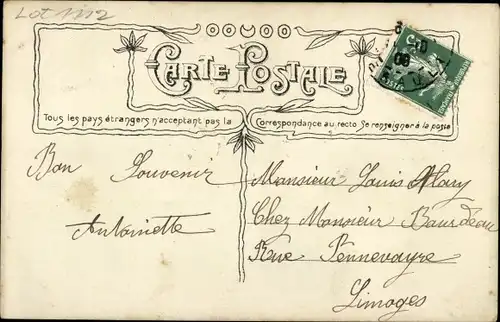 Lot 1112
CARTE POSTALE
Tous les pays étrangers n'acceptent pas la Correspondance au recto Se renseigner à la poste
Bon Souvenir
Antoinette
Monsieur Louis Alary
Chez Monsieur Bourdeau
Rue Pennevayre
Limoges